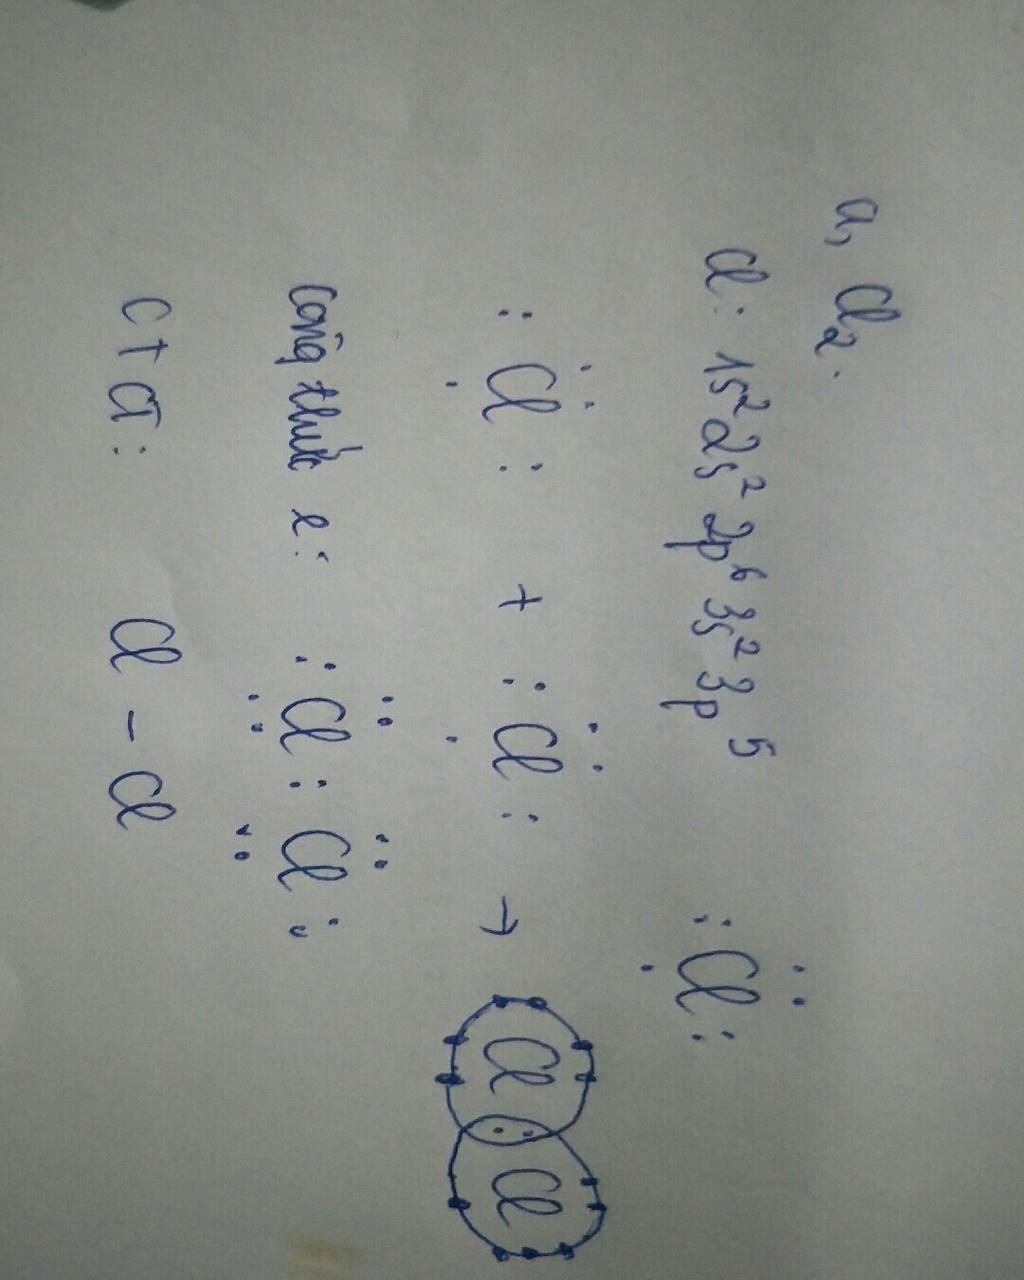 a, Cl2.
Cl: 1s² 2s² 2p⁶ 3s² 3p⁵ :Cl:
:Cl: + :Cl: → Cl : Cl
Công thức e: :Cl:Cl:
CTCT: Cl - Cl